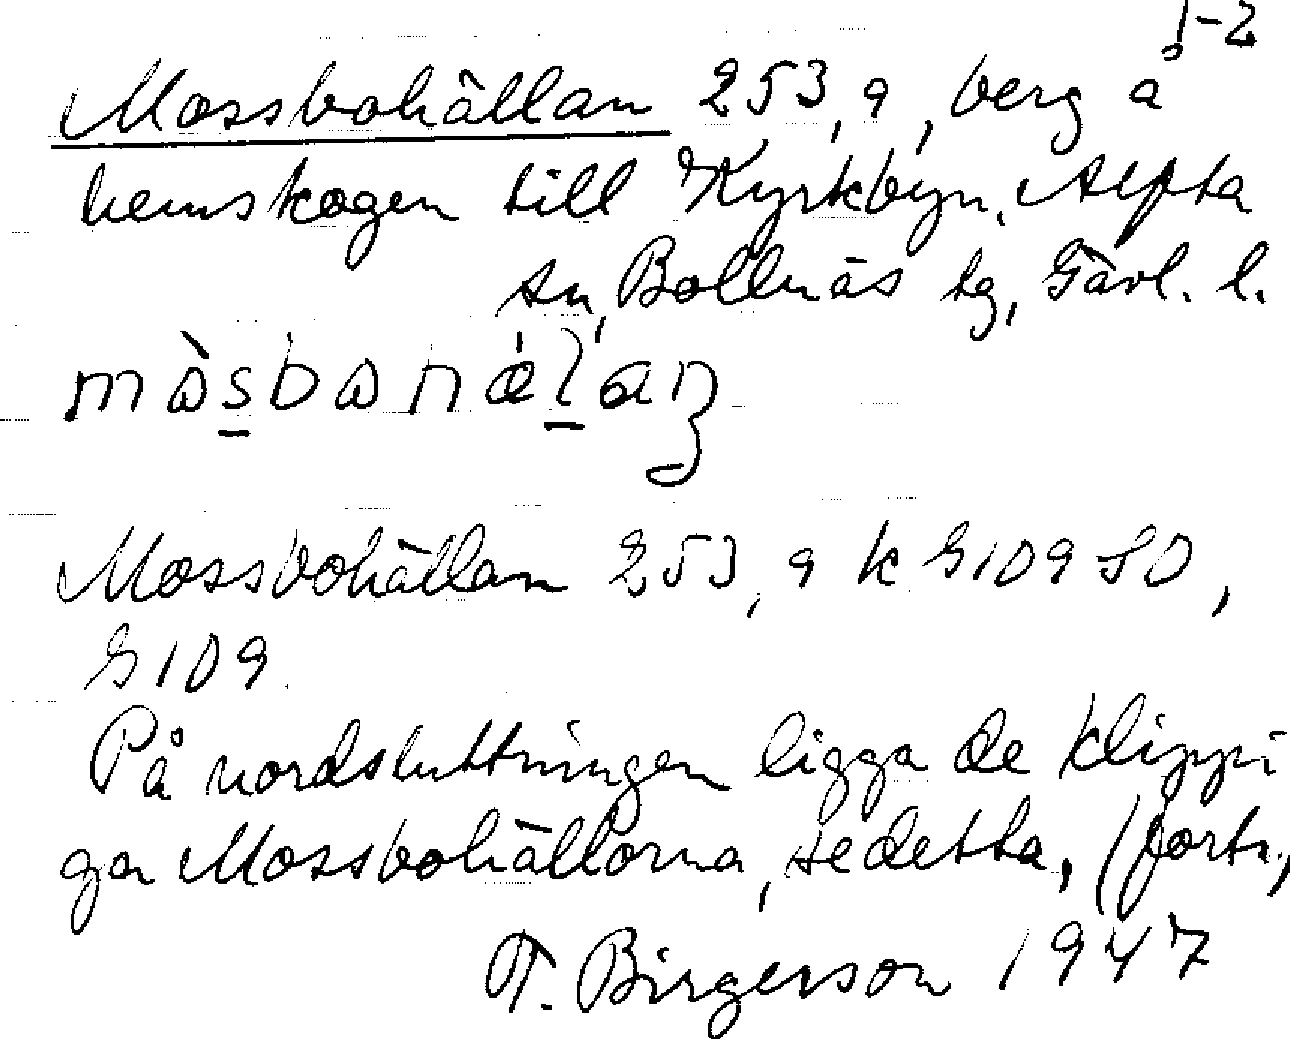 1-2
Mossbohällan 253, 9, berg å
hemskogen till Kyrkbyn, Alfta
sn, Bollnäs tg, Gävl. l.
Mossbohällan 253, 9 k G109 SO,
G109.
På nordsluttningen ligga de klippi
ga Mossbohällorna, se detta, (forts.,
T. Birgerson 1947